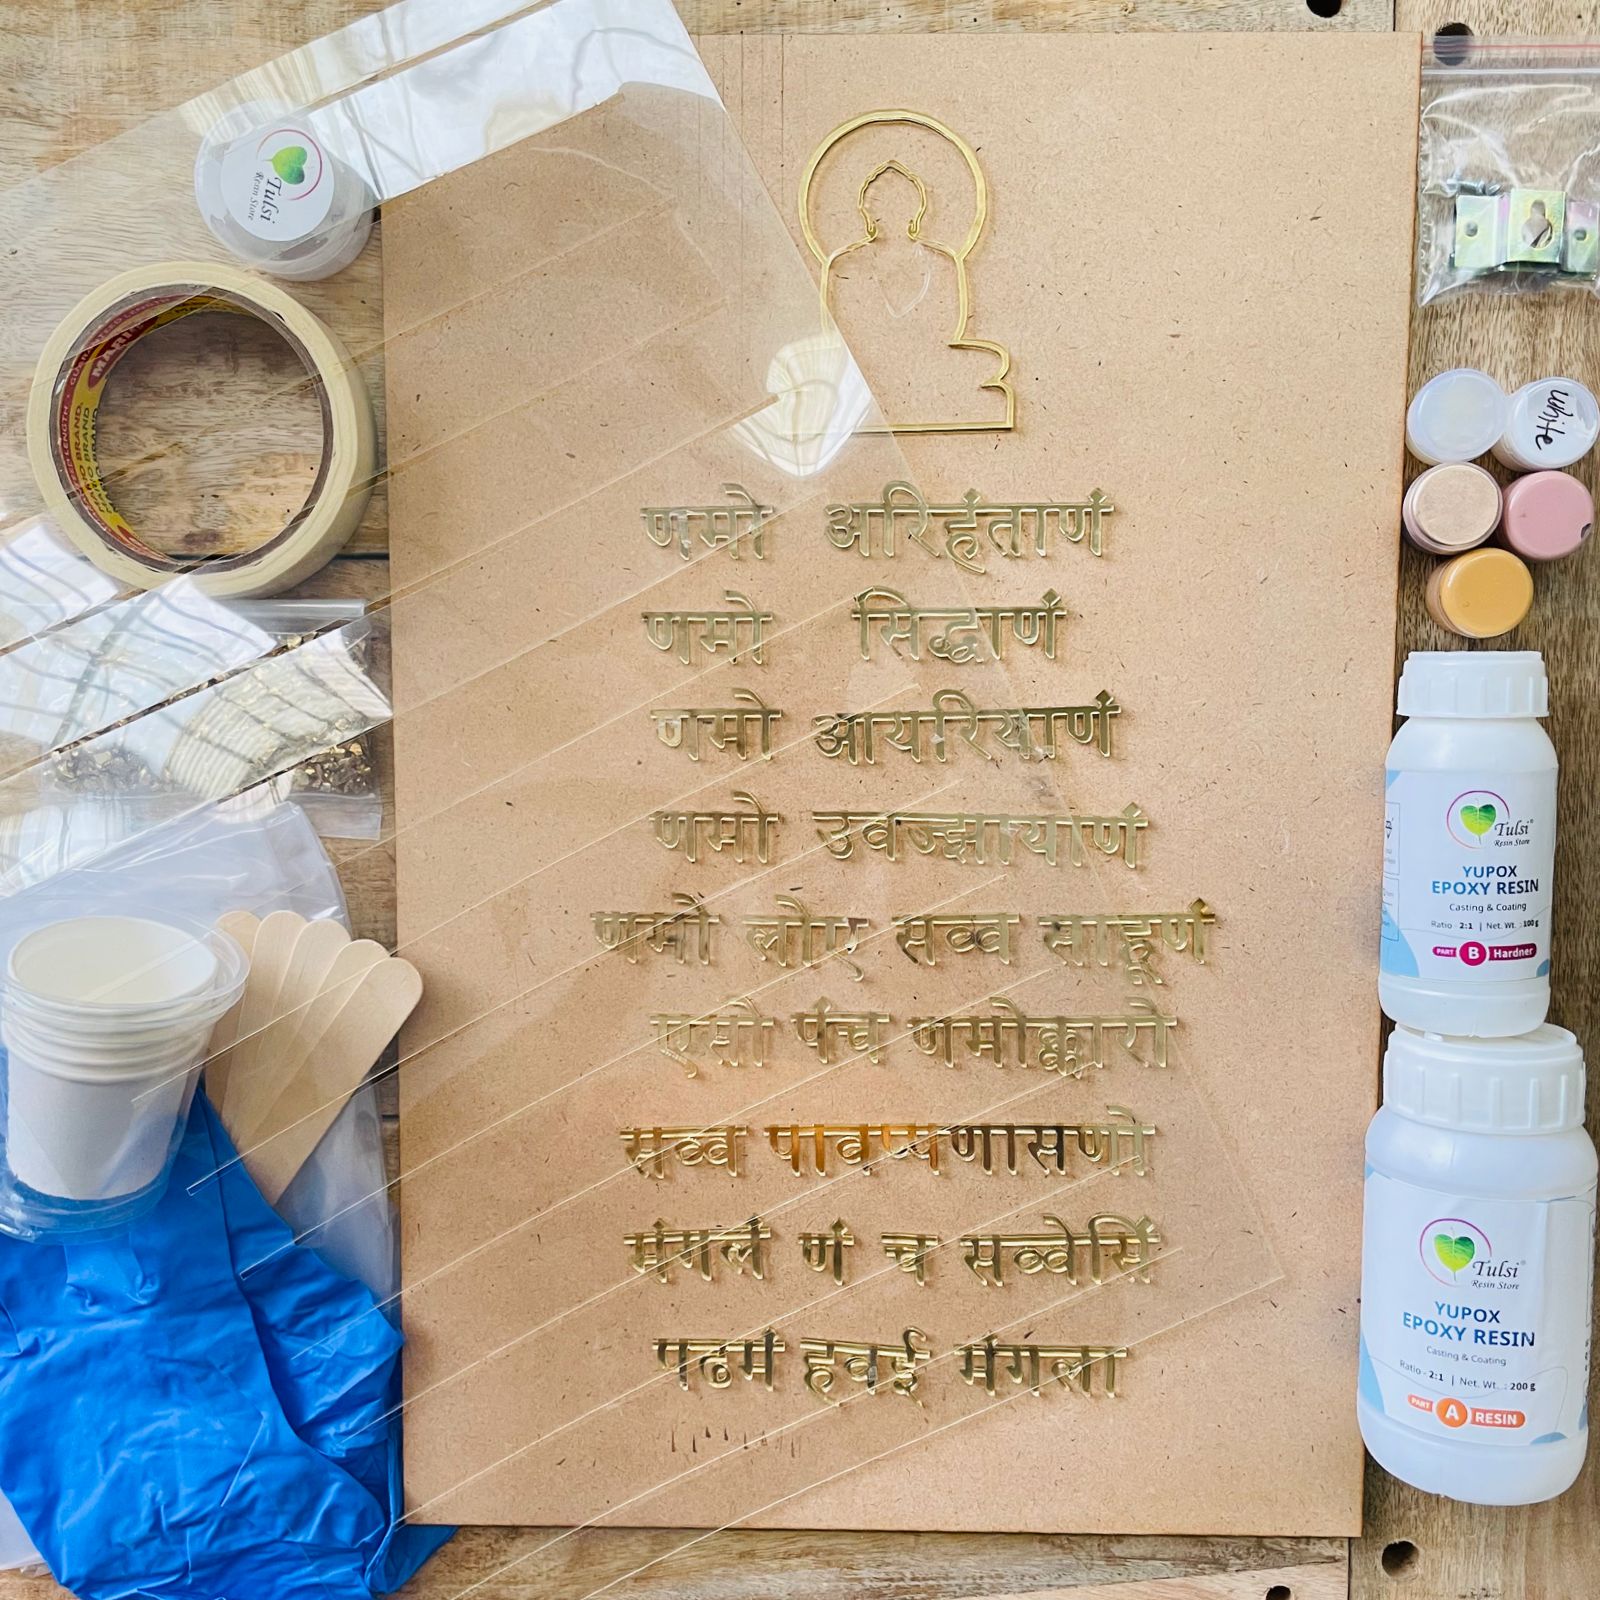 Tulsi
Resin Store
MARI
BRAND
White
णमो अरिहंताणं
णमो सिद्धाणं
णमो आयरियाणं
णमो उवज्झायाणं
णमो लोए सव्व साहूणं
एसो पंच णमोक्कारो
सव्व पावप्पणासणो
मंगलं णं च सव्वेसिं
पढमं हवई मंगला
Tulsi
Resin Store
YUPOX
EPOXY RESIN
Casting & Coating
Ratio - 2:1 | Net. Wt. : 100 g
PART B Hardner
Tulsi
Resin Store
YUPOX
EPOXY RESIN
Casting & Coating
Ratio - 2:1 | Net. Wt. : 200 g
PART A RESIN